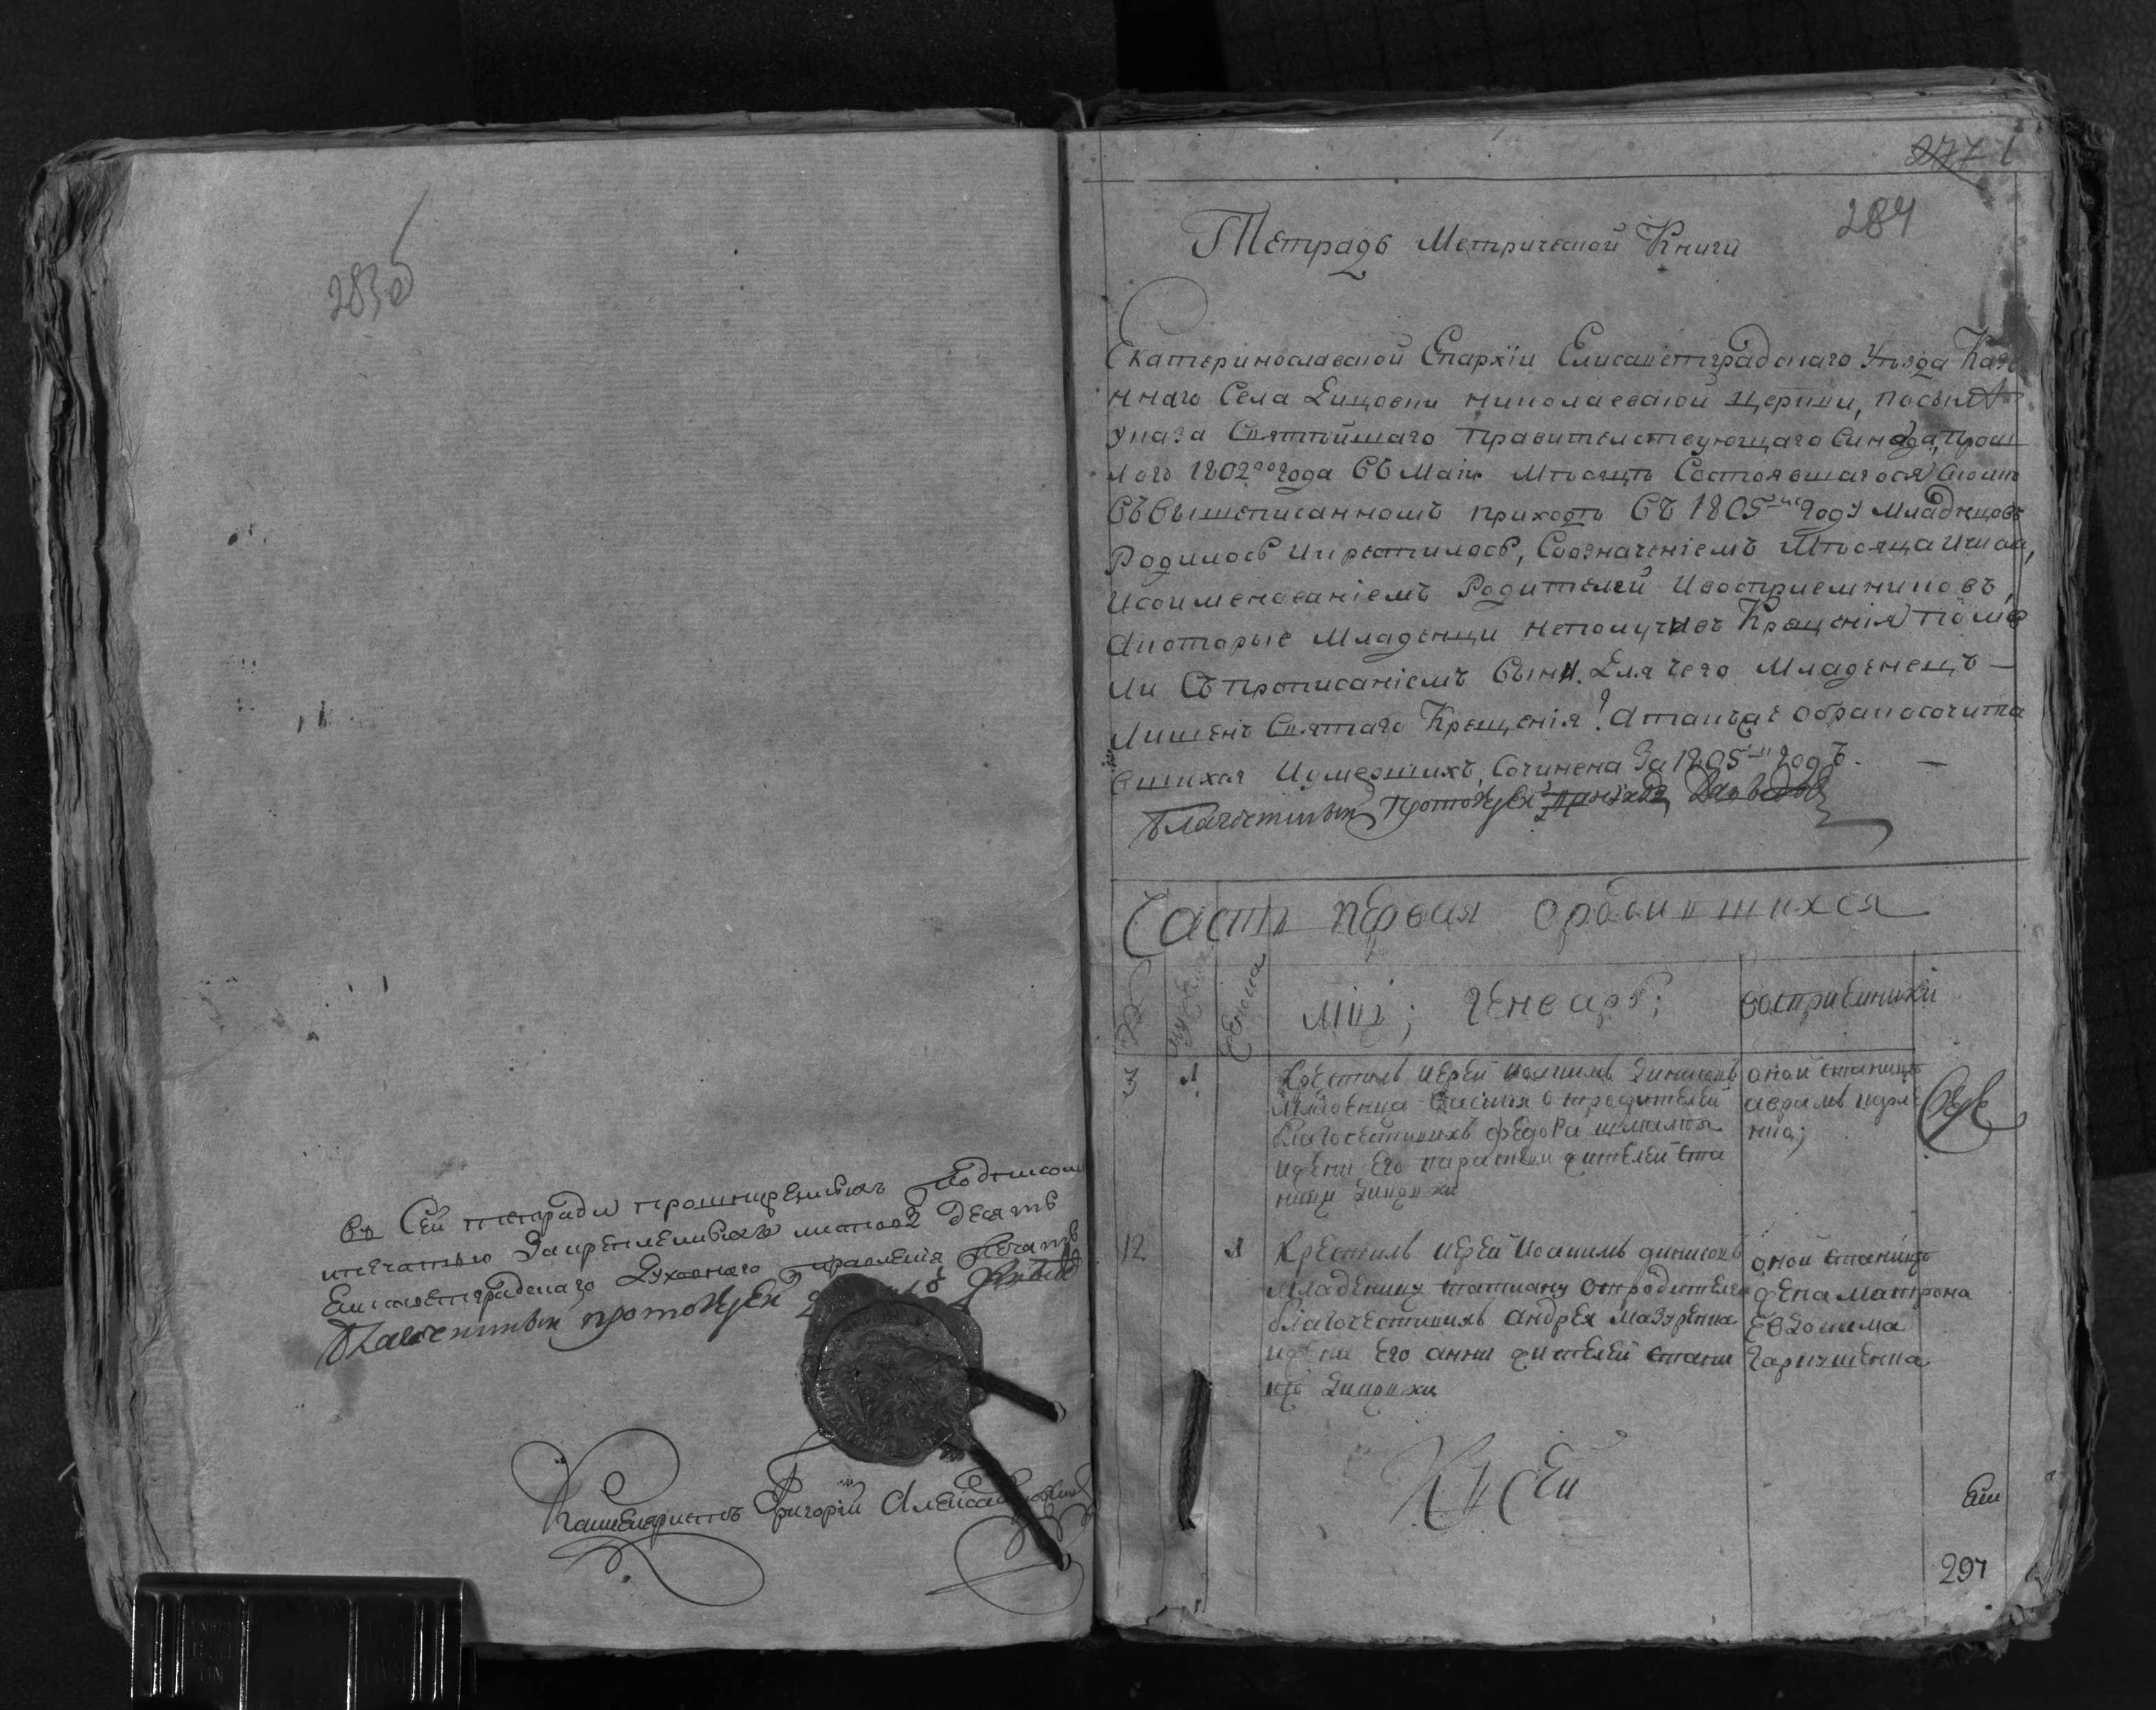 283об
Въ Сей тетради прошнуренныхъ подписом
ипечатью Закрепленныхъ листовъ десять
Елисаветградскаго Духовнаго правления Печать
Благочинный протоиерей
Канцеляристъ Григорій Александровичъ
277 1
284
Тетрадь Метрической Книги
Екатеринославской Епархїи Елисаветградскаго Уѣзда Казе
ннаго Села Диковки николаевской Церкви, посилѣ
указа Святѣйшаго правителствующаго Синода, прош
лого 1802го года Въ Маїи Мѣсяцѣ Состоявшагося
Въ Вышеписанномъ приходѣ Съ 1805 году Младенцовъ
Родилось икрестилось, Созначенїемъ Мѣсяца ичисла,
исоименованїемъ Родителей ивосприемниковъ,
Акоторые Младенцы неполучивъ Крещенїя помер
ли Съ прописанїемъ Вины. Для чего Младенецъ
Лишенъ Святаго Крещенїя? Атакъже обракосочета
вшихся иумершихъ, Сочинена За 1805 годъ.
Благочинный протоиерей
Часть первая ородившихся
мужеска
женска
мцъ; генварь;
восприемники
3 1
Крестилъ иерей Иоакимъ
младенца василия отродителей
благочестивихъ федора
ижени его параскеви жителей ста
ници Диковки
оной станици
12 1
Крестилъ иерей Иоакимъ
младеницу татиану отродителей
благочестивихъ андрея мазуренка
ижени его анни жителей стани
ци Диковки
оной станици
жена матрона
Евдокима
Къ Сей
297